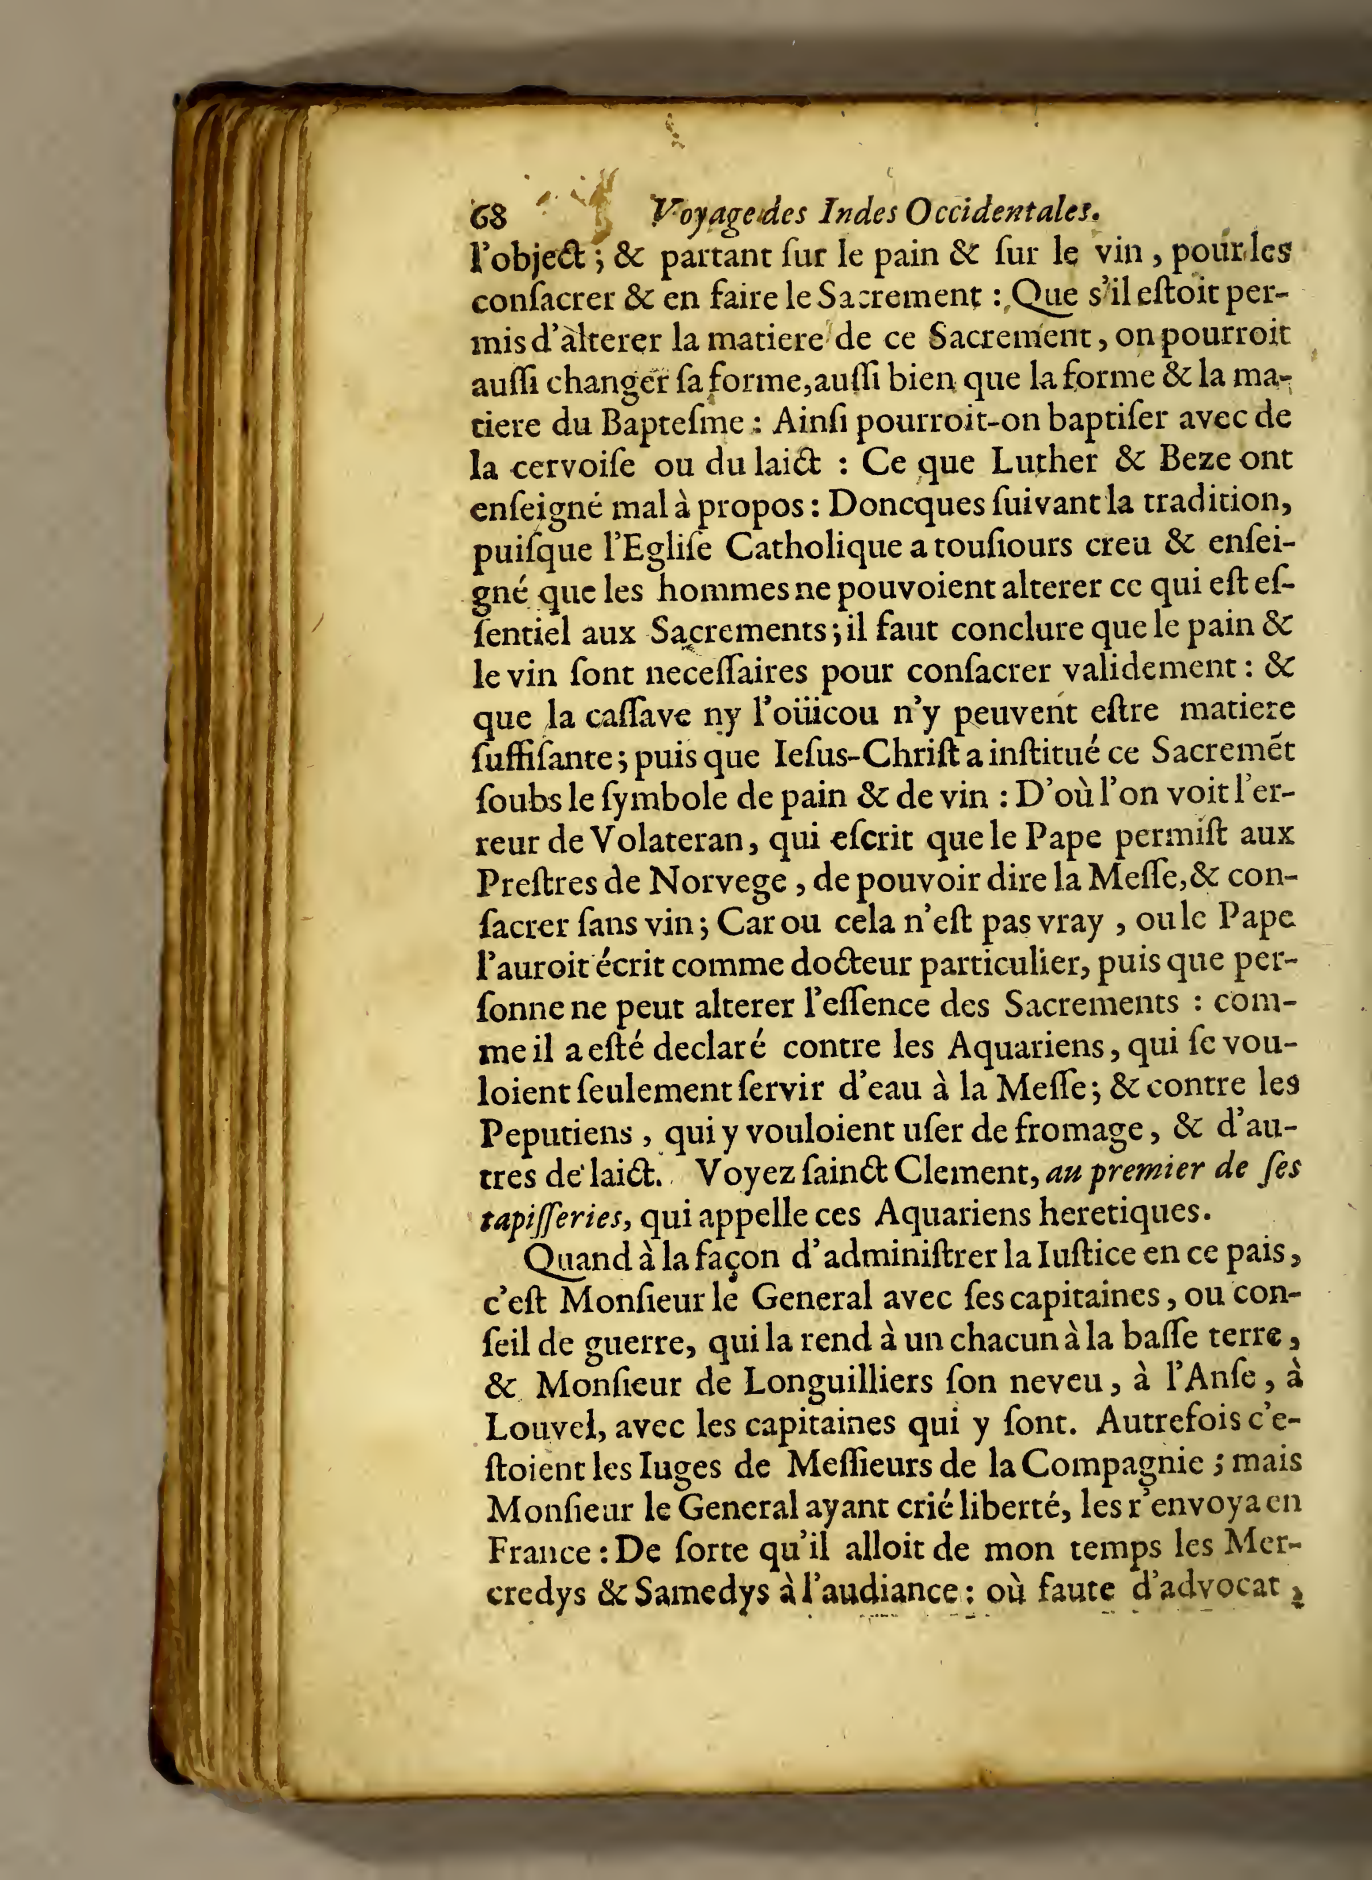 68 Voyage des Indes Occidentales.
l'object ; & partant ſur le pain & ſur le vin , pour les
conſacrer & en faire le Sacrement : Que s'il eſtoit per-
mis d'alterer la matiere de ce Sacrement , on pourroit
auſſi changer ſa forme,auſſi bien que la forme & la ma-
tiere du Bapteſme : Ainſi pourroit-on baptiſer avec de
la cervoiſe ou du laict : Ce que Luther & Beze ont
enſeigné mal à propos : Doncques ſuivant la tradition,
puiſque l'Egliſe Catholique a touſiours creu & enſei-
gné que les hommes ne pouvoient alterer ce qui eſt eſ-
ſentiel aux Sacrements ; il faut conclure que le pain &
le vin ſont neceſſaires pour conſacrer validement : &
que la caſſave ny l'oüicou n'y peuvent eſtre matiere
ſuffiſante ; puis que Ieſus-Chriſt a inſtitué ce Sacremẽt
ſoubs le ſymbole de pain & de vin : D'où l'on voit l'er-
reur de Volateran, qui eſcrit que le Pape permiſt aux
Preſtres de Norvege , de pouvoir dire la Meſſe,& con-
ſacrer ſans vin ; Car ou cela n'eſt pas vray , ou le Pape
l'auroit écrit comme docteur particulier, puis que per-
ſonne ne peut alterer l'eſſence des Sacrements : com-
me il a eſté declaré contre les Aquariens , qui ſe vou-
loient ſeulement ſervir d'eau à la Meſſe ; & contre les
Peputiens , qui y vouloient uſer de fromage , & d'au-
tres de laict. Voyez ſainct Clement, au premier de ſes
tapiſſeries, qui appelle ces Aquariens heretiques.
Quand à la façon d'adminiſtrer la Iuſtice en ce pais ,
c'eſt Monſieur le General avec ſes capitaines , ou con-
ſeil de guerre, qui la rend à un chacun à la baſſe terre ,
& Monſieur de Longuilliers ſon neveu , à l'Anſe , à
Louvel, avec les capitaines qui y ſont. Autrefois c'e-
ſtoient les Iuges de Meſſieurs de la Compagnie ; mais
Monſieur le General ayant crié liberté, les r'envoya en
France : De ſorte qu'il alloit de mon temps les Mer-
credys & Samedys à l'audiance : où faute d'advocat ,